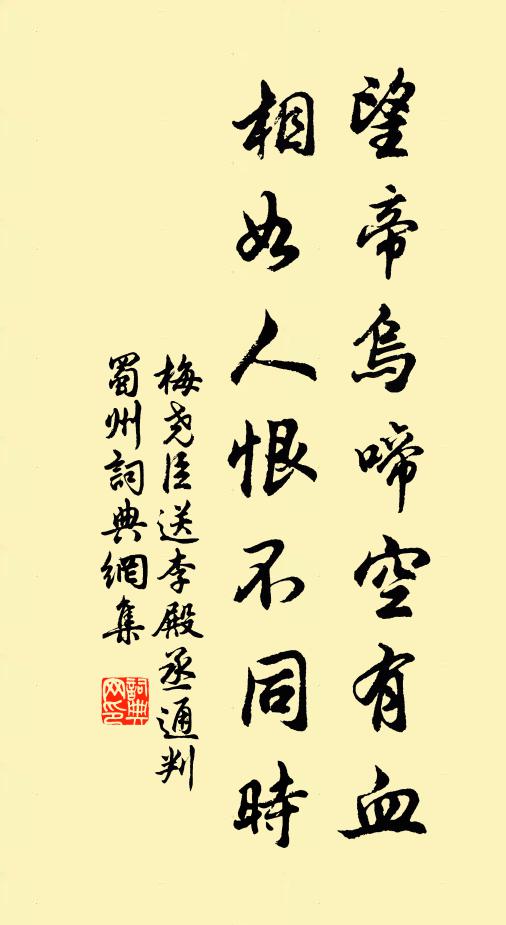 望帝烏啼空有血
相如人恨不同時
梅尧臣送李殿丞通判
蜀州詞典網集
詞典网印